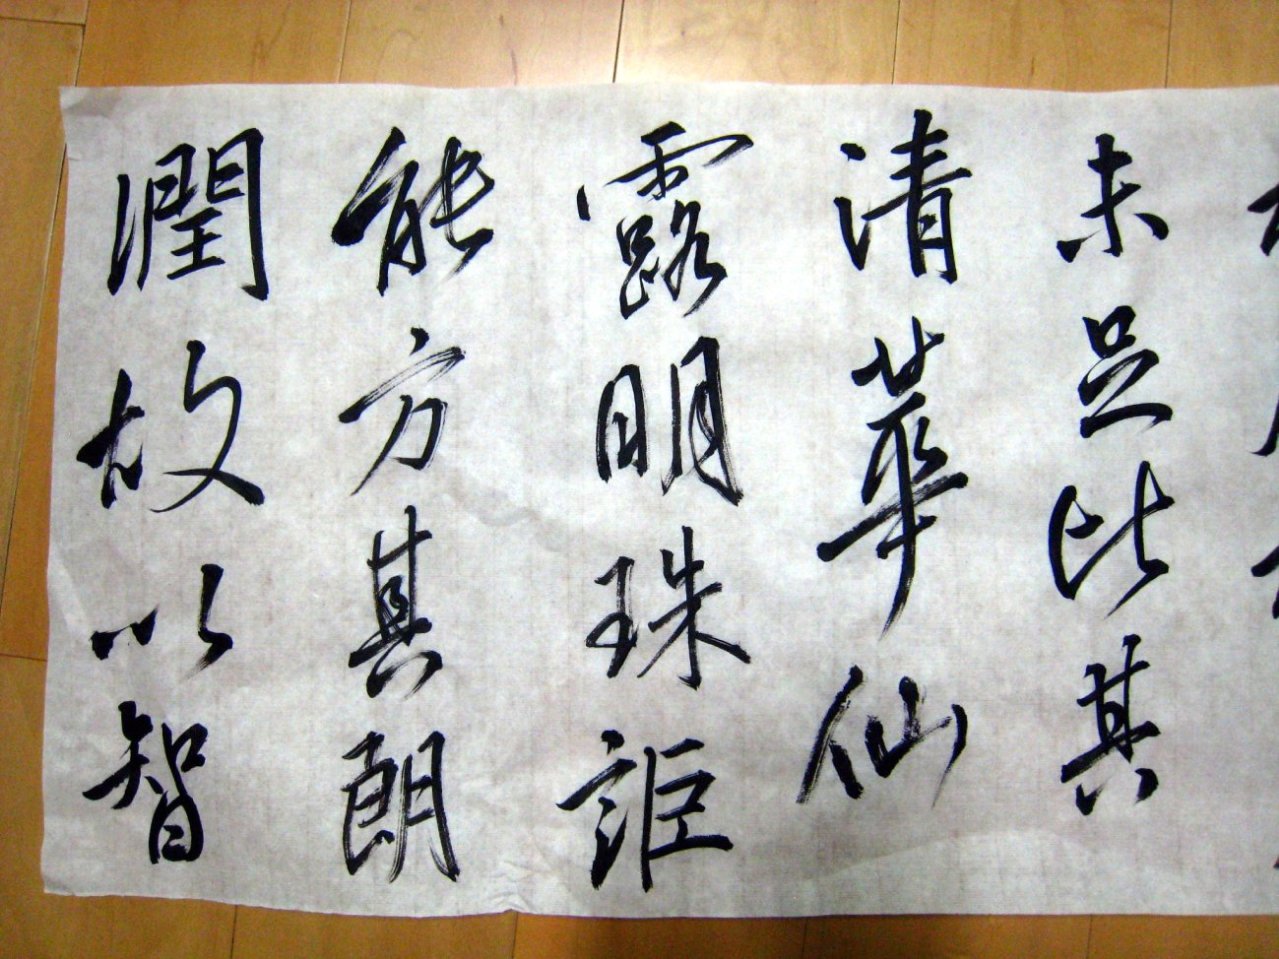 未足比其
清華仙
露明珠詎
能方其朗
潤故以智